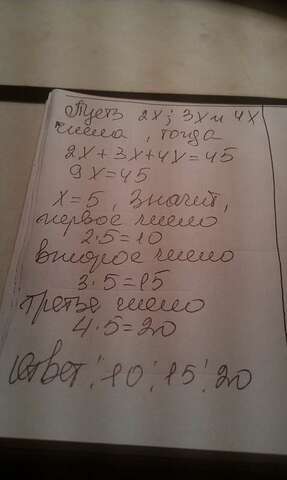 Пусть 2х; 3х и 4х
числа, тогда
2х+3х+4х=45
9х=45
х=5, значит,
первое число
2·5=10
второе число
3·5=15
третье число
4·5=20
Ответ: 10; 15; 20